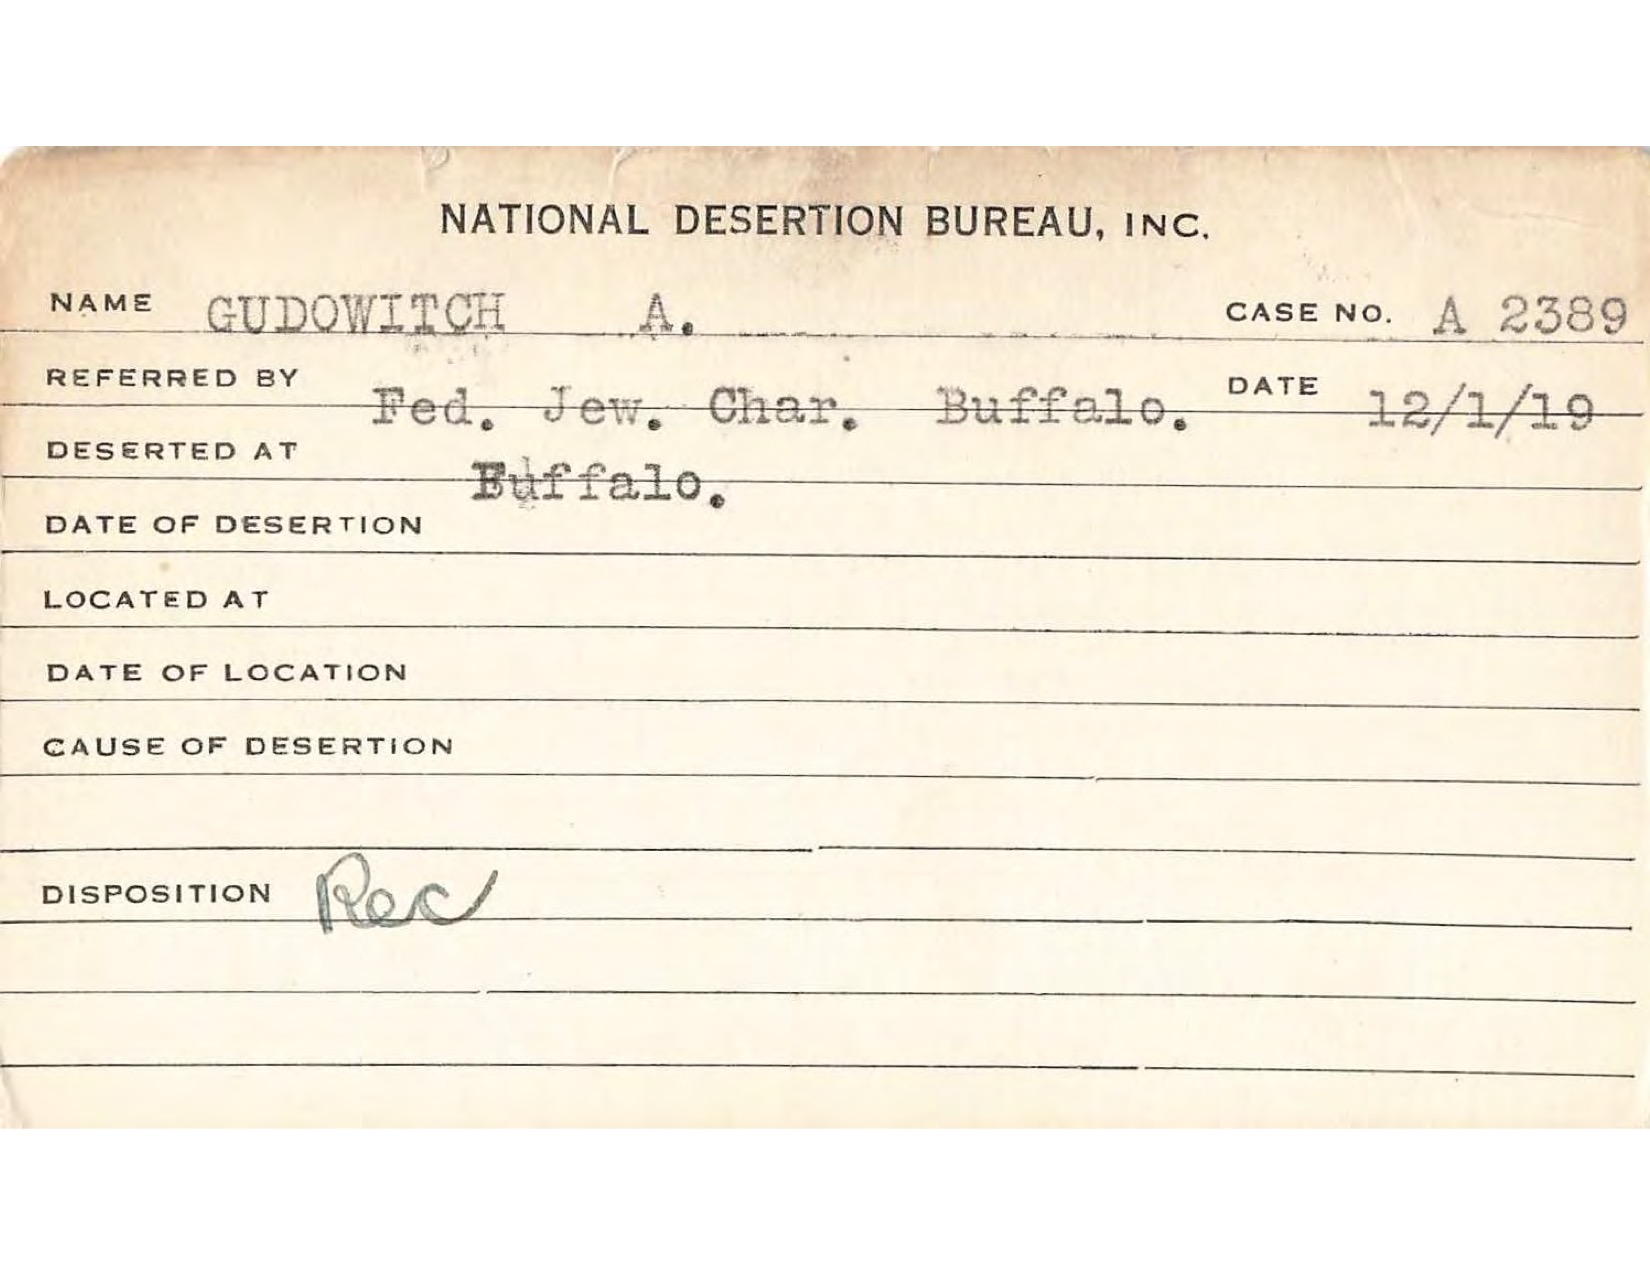 NATIONAL DESERTION BUREAU, INC.
NAME GUDOWITCH A. CASE NO. A 2389
REFERRED BY Fed. Jew. Char. Buffalo. DATE 12/1/19
DESERTED AT Buffalo.
DATE OF DESERTION
LOCATED AT
DATE OF LOCATION
CAUSE OF DESERTION
DISPOSITION Rec